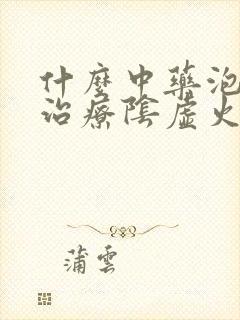 什麼中藥泡
治療陰虛火
蒲雲